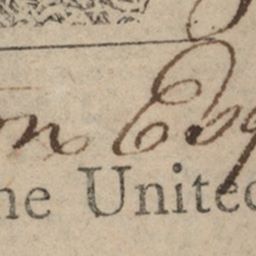 on Esq
he United